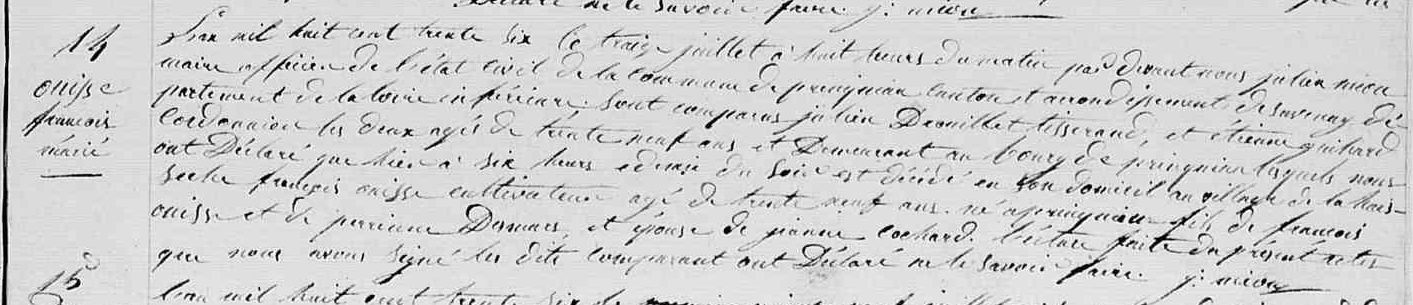 Déclaré ne le savoir faire. j: mieou
14
ouisse
francois
marié
L'an mil huit cent trente six le traize juillet à huit heurs du matin par devant nous julien mieou
maire officier de l'état civil de la commune de prinquiau canton et arrondissement de savenay dé-
partement de la loire inférieure. sont comparus julien Drouillet tisserand, et étienne guihard
Cordonnier les deux agés de trente neuf ans et Demeurant au bourg de prinquiau lesquels nous
ont Déclaré que hier à six heurs edemie du soir est décédé en son domicil au village de la hais-
seche françois ouisse cultivateur agé de trente neuf ans. né a prinquiau fils de francois
ouisse et de perrine Demars, et épouse de jeanne cochard. lecture faite du présent acte
que nous avons signé les dits comparant ont Déclaré ne le savoir faire. j: mieou
15
L'an mil huit cent trente six